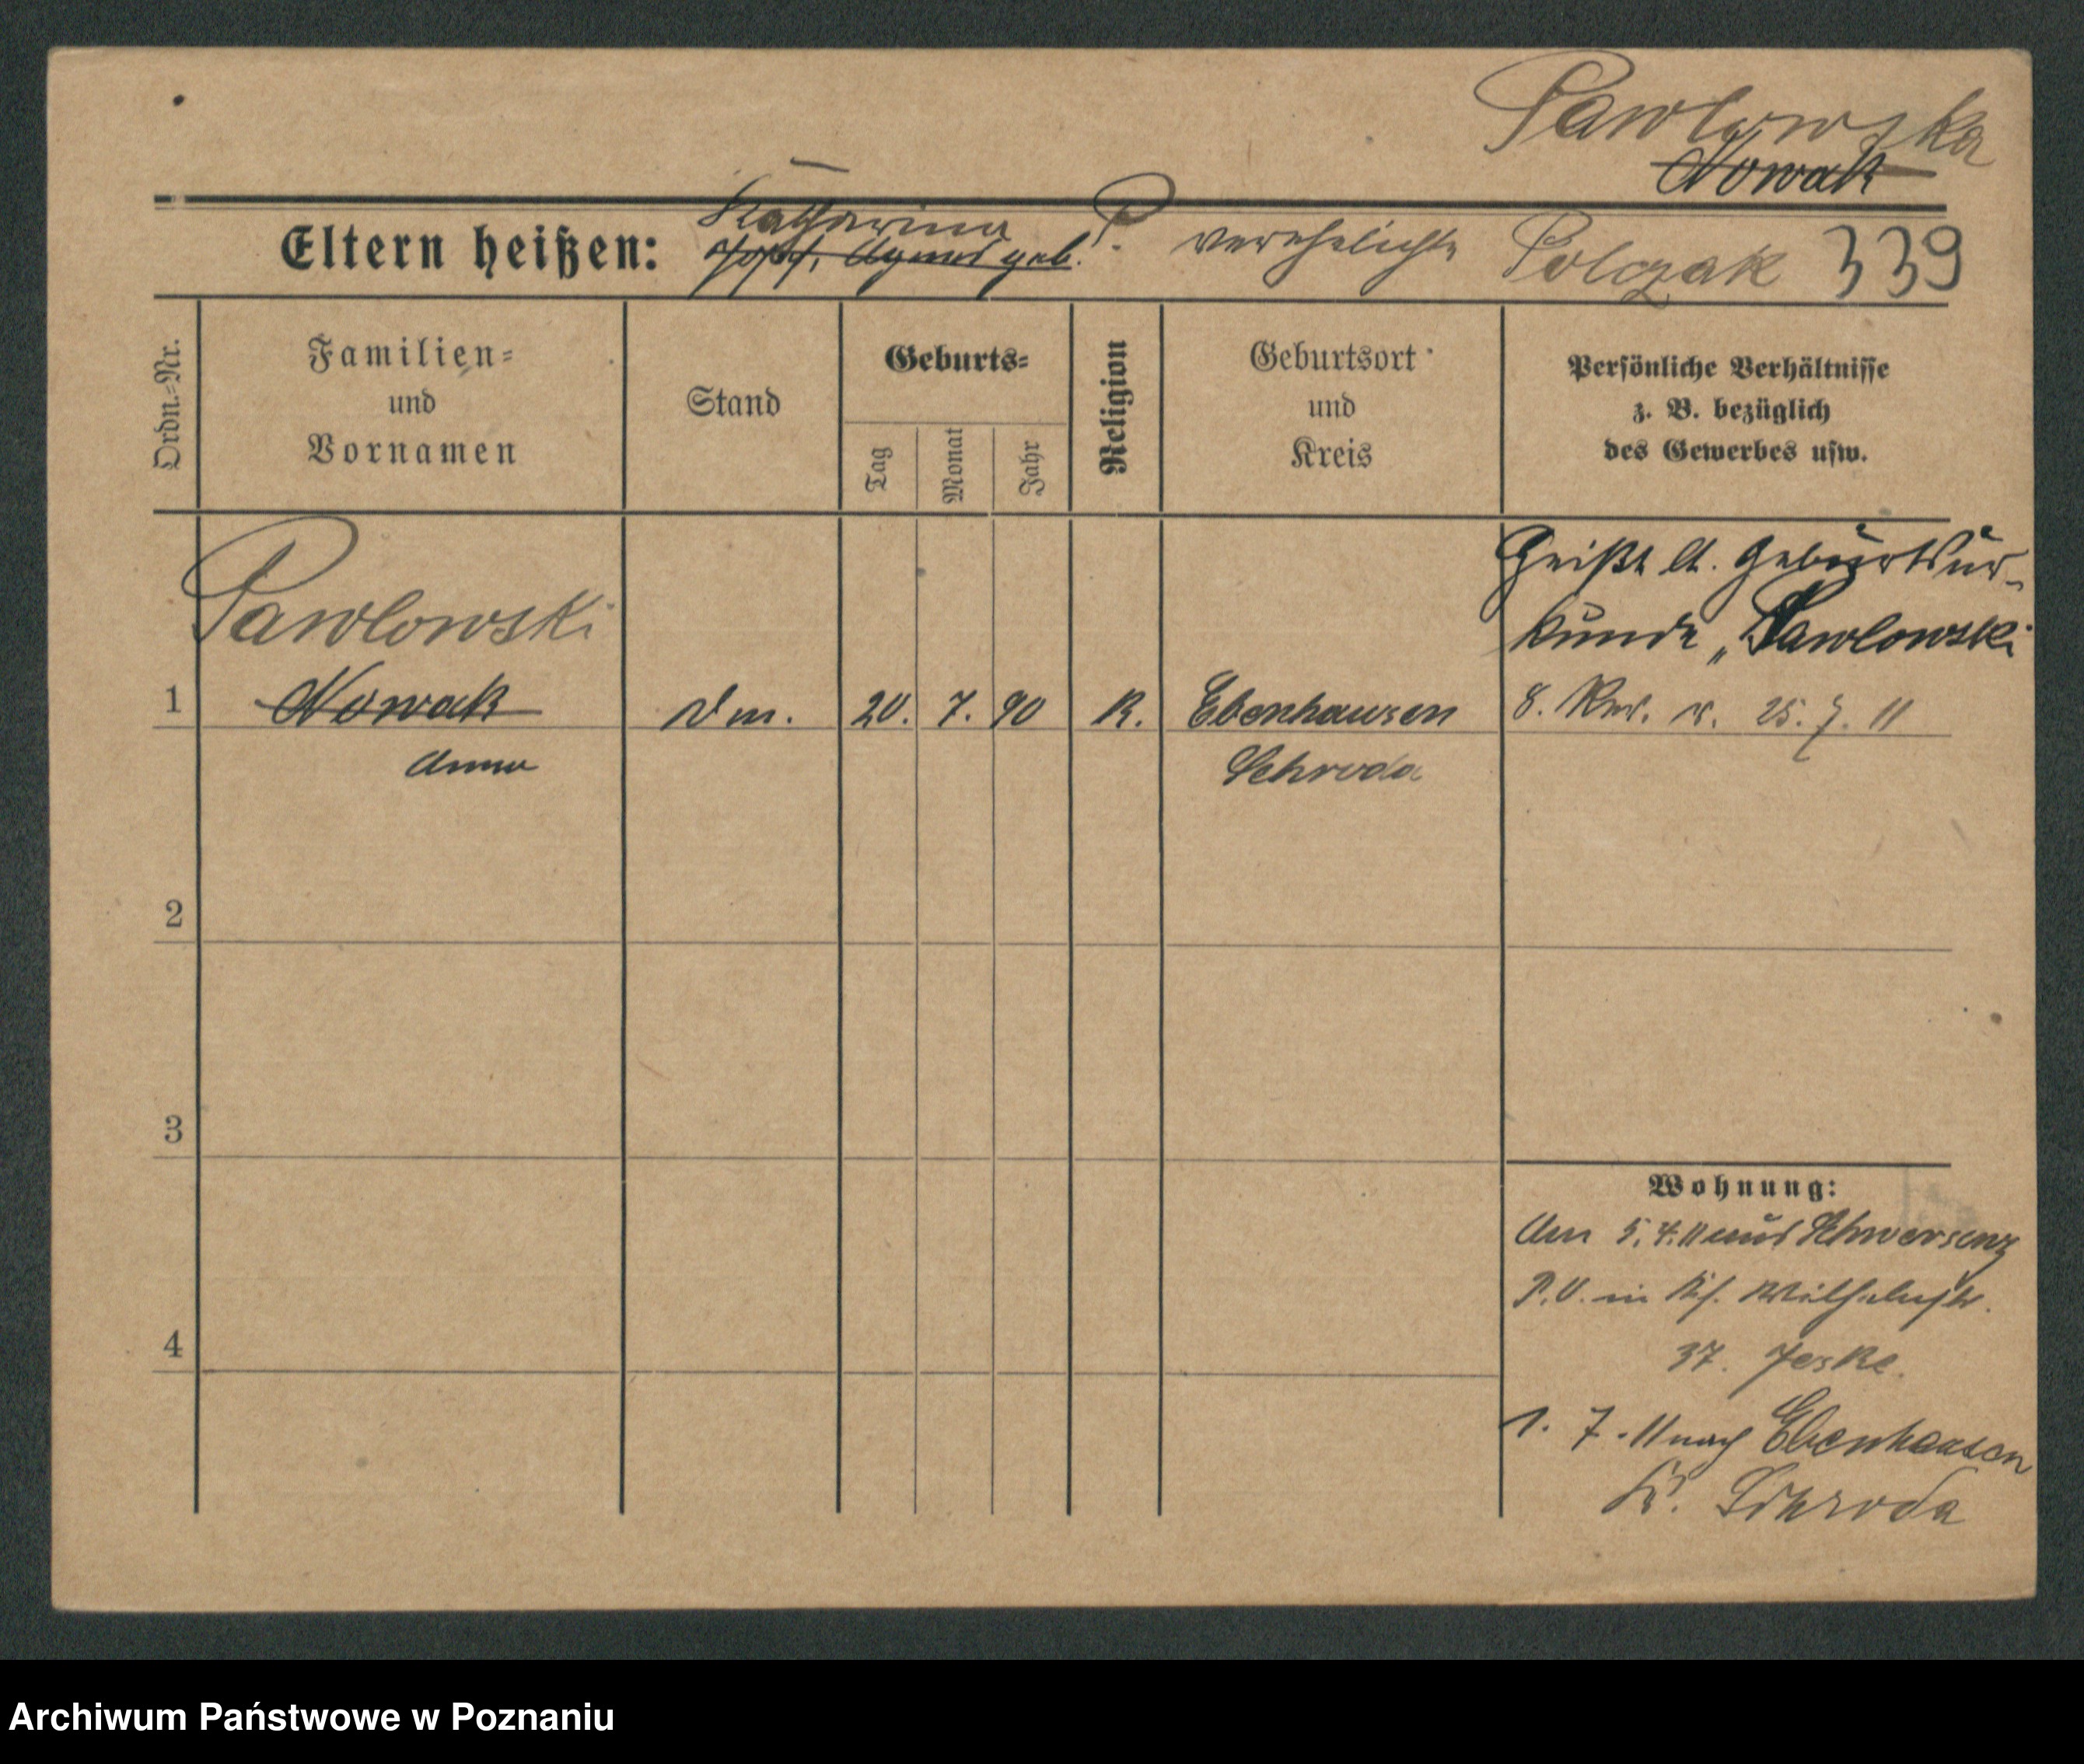 Pawlowska
Nowak
Katharina P. verehelichte Polczak 339
Eltern heißen: Josef, Agnes geb.
Ordn.-Nr.
Familien-
und
Vornamen
Stand
Geburts-
Tag
Monat
Jahr
Religion
Geburtsort
und
Kreis
Persönliche Verhältnisse
z. B. bezüglich
des Gewerbes usw.
Heißt lt. Geburtsur-
kunde „Pawlowski
Pawlowski
1 Nowak Dm. 20. 7. 90 K. Ebenhausen 8. Rev. v. 25. 7. 11
Anna Schroda
2
3
4
Wohnung:
Am 5. 4. 11 aus Schwersenz
P.O. in Wilhelmstr.
37. Jeske.
1. 7. 11 nach Ebenhausen
Kr. Schroda
Archiwum Państwowe w Poznaniu